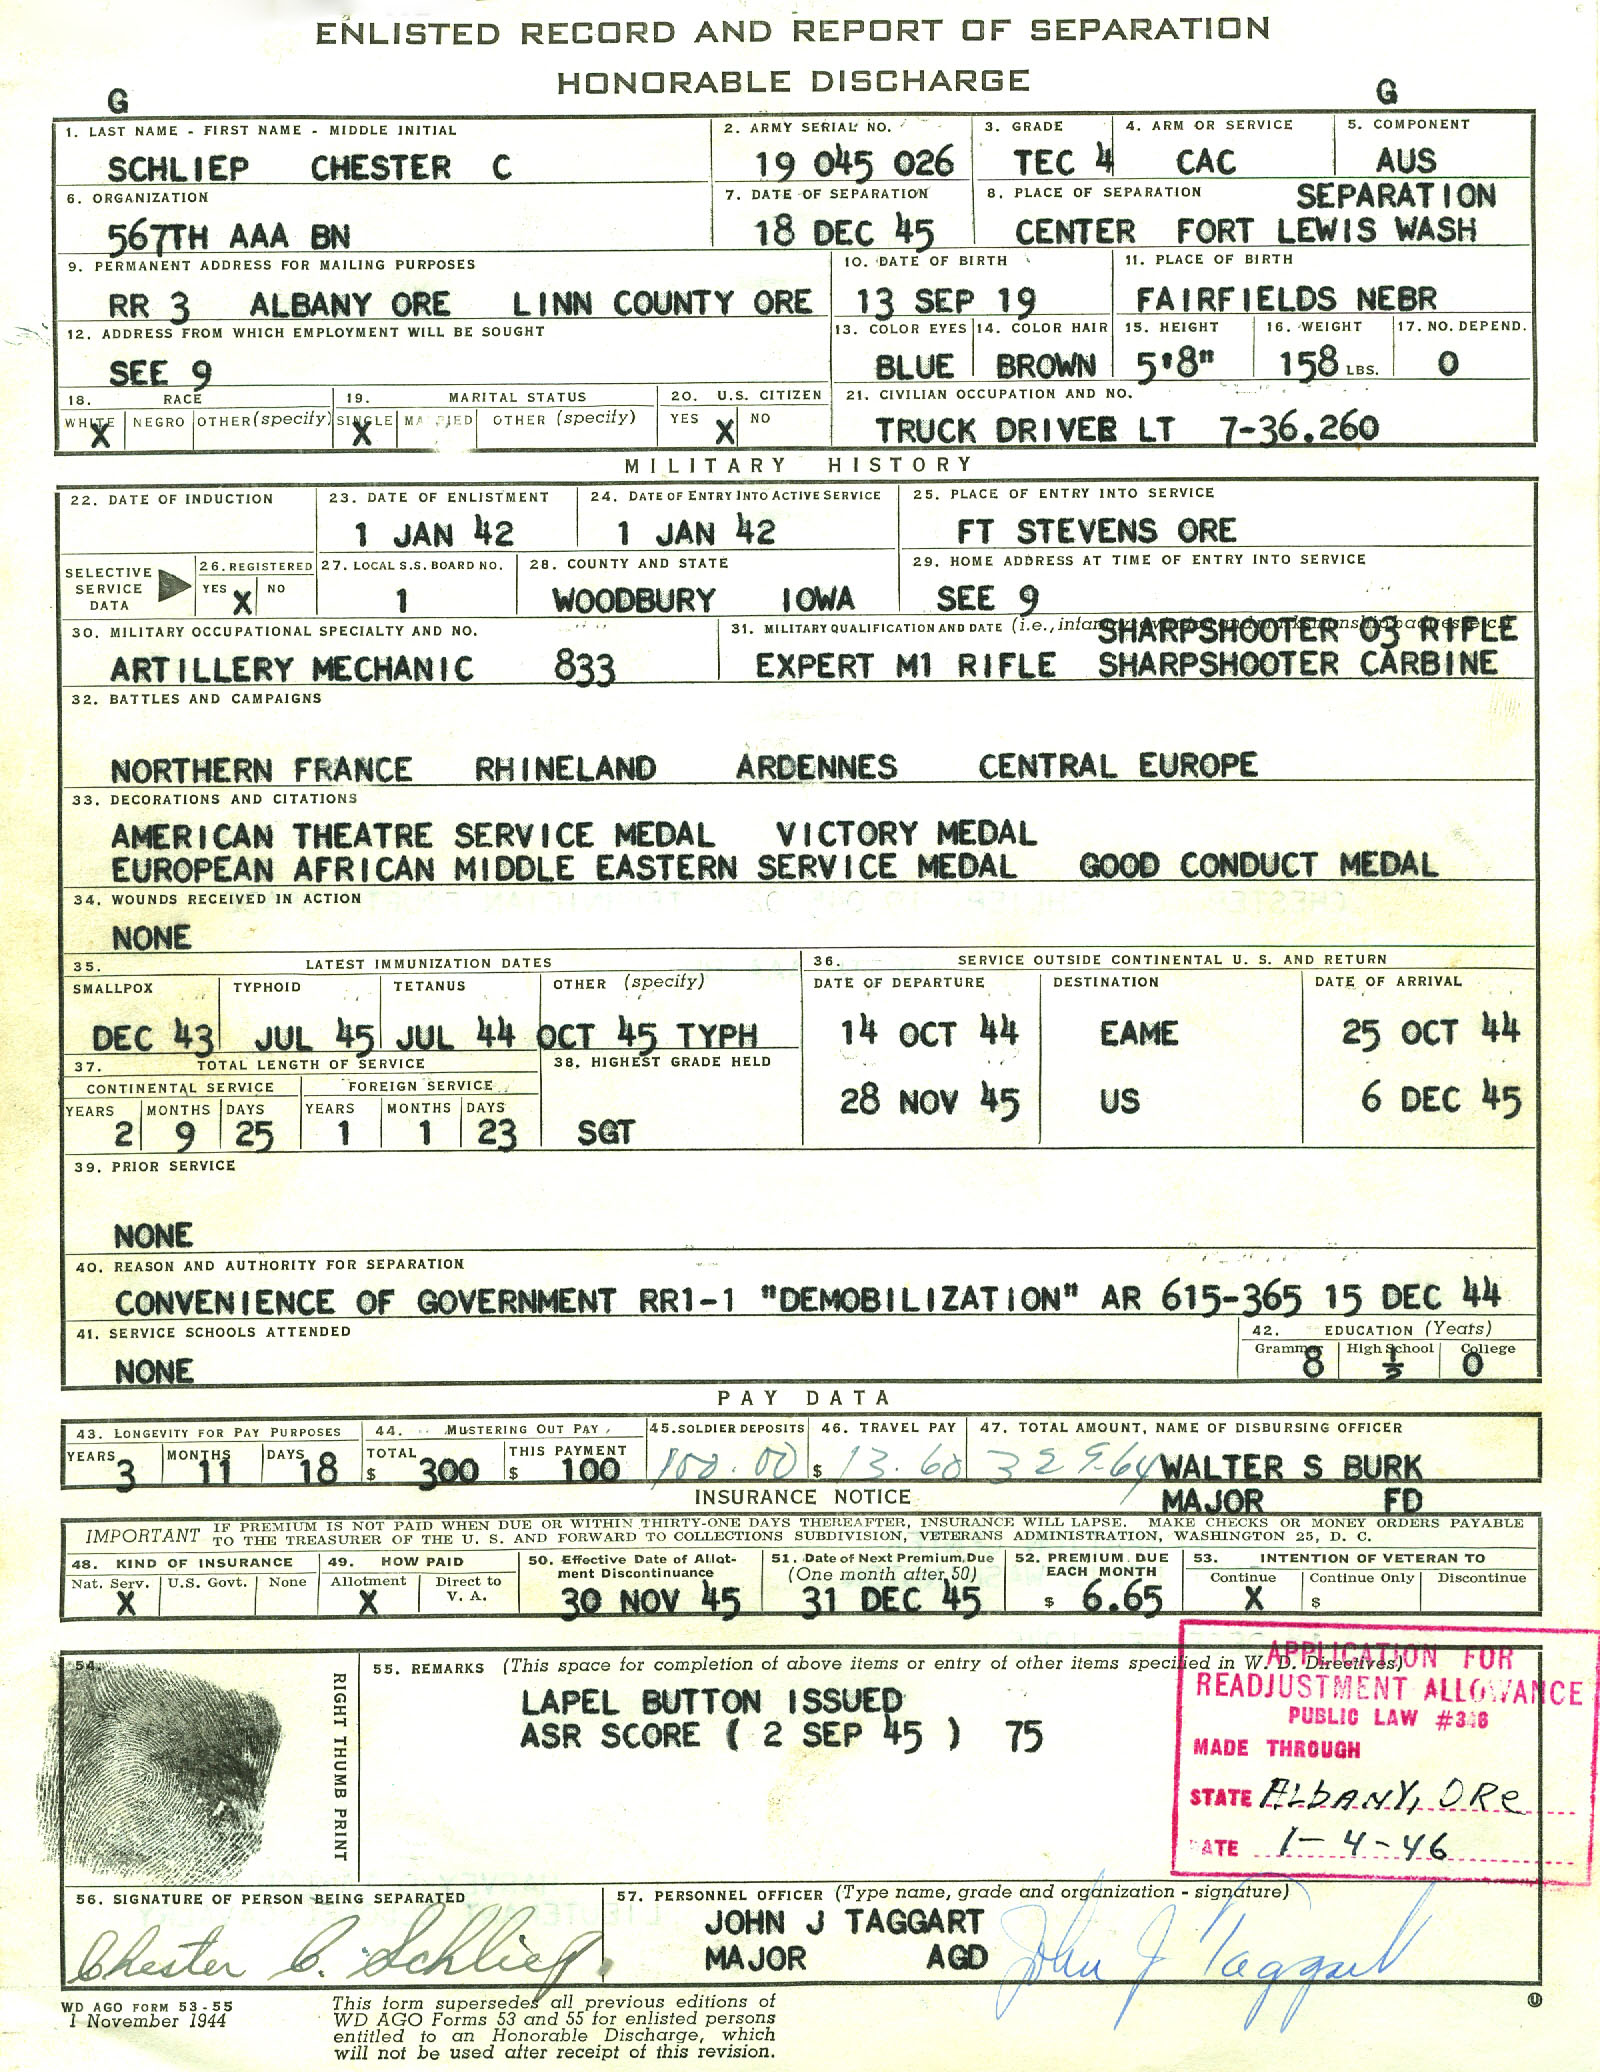 ENLISTED RECORD AND REPORT OF SEPARATION
HONORABLE DISCHARGE
G G
1. LAST NAME - FIRST NAME - MIDDLE INITIAL 2. ARMY SERIAL NO. 3. GRADE 4. ARM OR SERVICE 5. COMPONENT
SCHLIEP CHESTER C 19 045 026 TEC 4 CAC AUS
6. ORGANIZATION 7. DATE OF SEPARATION 8. PLACE OF SEPARATION SEPARATION
567TH AAA BN 18 DEC 45 CENTER FORT LEWIS WASH
9. PERMANENT ADDRESS FOR MAILING PURPOSES 10. DATE OF BIRTH 11. PLACE OF BIRTH
RR 3 ALBANY ORE LINN COUNTY ORE 13 SEP 19 FAIRFIELDS NEBR
12. ADDRESS FROM WHICH EMPLOYMENT WILL BE SOUGHT 13. COLOR EYES 14. COLOR HAIR 15. HEIGHT 16. WEIGHT 17. NO. DEPEND.
SEE 9 BLUE BROWN 5'8" 158 LBS. 0
18. RACE 19. MARITAL STATUS 20. U.S. CITIZEN 21. CIVILIAN OCCUPATION AND NO.
WHITE X NEGRO OTHER (specify) SINGLE X MARRIED OTHER (specify) YES X NO TRUCK DRIVER LT 7-36.260
MILITARY HISTORY
22. DATE OF INDUCTION 23. DATE OF ENLISTMENT 24. DATE OF ENTRY INTO ACTIVE SERVICE 25. PLACE OF ENTRY INTO SERVICE
1 JAN 42 1 JAN 42 FT STEVENS ORE
SELECTIVE SERVICE DATA 26. REGISTERED 27. LOCAL S.S. BOARD NO. 28. COUNTY AND STATE 29. HOME ADDRESS AT TIME OF ENTRY INTO SERVICE
YES X NO 1 WOODBURY IOWA SEE 9
30. MILITARY OCCUPATIONAL SPECIALTY AND NO. 31. MILITARY QUALIFICATION AND DATE (i.e., infantry, aviation and marksmanship badges, etc.) SHARPSHOOTER 03 RIFLE
ARTILLERY MECHANIC 833 EXPERT M1 RIFLE SHARPSHOOTER CARBINE
32. BATTLES AND CAMPAIGNS
NORTHERN FRANCE RHINELAND ARDENNES CENTRAL EUROPE
33. DECORATIONS AND CITATIONS
AMERICAN THEATRE SERVICE MEDAL VICTORY MEDAL
EUROPEAN AFRICAN MIDDLE EASTERN SERVICE MEDAL GOOD CONDUCT MEDAL
34. WOUNDS RECEIVED IN ACTION
NONE
35. LATEST IMMUNIZATION DATES 36. SERVICE OUTSIDE CONTINENTAL U. S. AND RETURN
SMALLPOX TYPHOID TETANUS OTHER (specify) DATE OF DEPARTURE DESTINATION DATE OF ARRIVAL
DEC 43 JUL 45 JUL 44 OCT 45 TYPH 14 OCT 44 EAME 25 OCT 44
37. TOTAL LENGTH OF SERVICE 38. HIGHEST GRADE HELD
CONTINENTAL SERVICE FOREIGN SERVICE 28 NOV 45 US 6 DEC 45
YEARS MONTHS DAYS YEARS MONTHS DAYS
2 9 25 1 1 23 SGT
39. PRIOR SERVICE
NONE
40. REASON AND AUTHORITY FOR SEPARATION
CONVENIENCE OF GOVERNMENT RR1-1 "DEMOBILIZATION" AR 615-365 15 DEC 44
41. SERVICE SCHOOLS ATTENDED 42. EDUCATION (Years)
Grammar High School College
NONE 8 ½ 0
PAY DATA
43. LONGEVITY FOR PAY PURPOSES 44. MUSTERING OUT PAY 45. SOLDIER DEPOSITS 46. TRAVEL PAY 47. TOTAL AMOUNT, NAME OF DISBURSING OFFICER
YEARS MONTHS DAYS TOTAL THIS PAYMENT
3 11 18 $ 300 $ 100 100.00 $ 13.60 329.64 WALTER S BURK
INSURANCE NOTICE MAJOR FD
IMPORTANT IF PREMIUM IS NOT PAID WHEN DUE OR WITHIN THIRTY-ONE DAYS THEREAFTER, INSURANCE WILL LAPSE. MAKE CHECKS OR MONEY ORDERS PAYABLE
TO THE TREASURER OF THE U. S. AND FORWARD TO COLLECTIONS SUBDIVISION, VETERANS ADMINISTRATION, WASHINGTON 25, D. C.
48. KIND OF INSURANCE 49. HOW PAID 50. Effective Date of Allotment Discontinuance 51. Date of Next Premium Due (One month after 50) 52. PREMIUM DUE EACH MONTH 53. INTENTION OF VETERAN TO
Nat. Serv. U.S. Govt. None Allotment Direct to V. A. Continue Continue Only Discontinue
X X 30 NOV 45 31 DEC 45 $ 6.65 X $
54. RIGHT THUMB PRINT
55. REMARKS (This space for completion of above items or entry of other items specified in W. D. Directives)
LAPEL BUTTON ISSUED
ASR SCORE ( 2 SEP 45 ) 75
APPLICATION FOR
READJUSTMENT ALLOWANCE
PUBLIC LAW #346
MADE THROUGH
STATE Albany, Ore
DATE 1-4-46
56. SIGNATURE OF PERSON BEING SEPARATED 57. PERSONNEL OFFICER (Type name, grade and organization - signature)
Chester C. Schliep. JOHN J TAGGART John J Taggart
MAJOR AGD
WD AGO FORM 53-55
1 November 1944
This form supersedes all previous editions of
WD AGO Forms 53 and 55 for enlisted persons
entitled to an Honorable Discharge, which
will not be used after receipt of this revision.